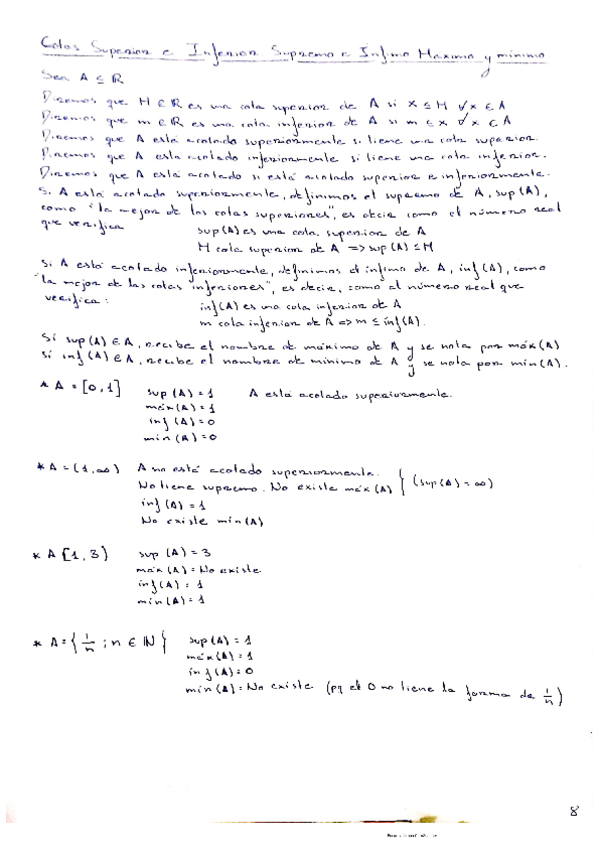 Cotas Superior e Inferior Supremo e Ínfimo Máximo y mínimo
Sea A ⊆ ℝ
Diremos que M ∈ ℝ es una cota superior de A si x ≤ M ∀x ∈ A
Diremos que m ∈ ℝ es una cota inferior de A si m ≤ x ∀x ∈ A
Diremos que A está acotado superiormente si tiene una cota superior.
Diremos que A esta acotado inferiormente si tiene una cota inferior.
Diremos que A está acotado si está acotado superior e inferiormente.
Si A está acotado superiormente, definimos el supremo de A, sup(A),
como "la mejor de las cotas superiores", es decir como el número real
que verifica
sup(A) es una cota superior de A
M cota superior de A ⇒ sup(A) ≤ M
Si A está acotado inferiormente, definimos el ínfimo de A, inf(A), como
"la mejor de las cotas inferiores", es decir, como el número real que
verifica:
inf(A) es una cota inferior de A
m cota inferior de A ⇒ m ≤ inf(A).
Si sup(A) ∈ A, recibe el nombre de máximo de A y se nota por máx(A)
Si inf(A) ∈ A, recibe el nombre de mínimo de A y se nota por mín(A).
* A = [0,1] sup(A) = 1 A está acotado superiormente.
máx(A) = 1
inf(A) = 0
min(A) = 0
* A = (1,∞) A no está acotado superiormente.
No tiene supremo. No existe máx(A) } (sup(A) = ∞)
inf(A) = 1
No existe mín(A)
* A [1,3) sup(A) = 3
máx(A) = No existe
inf(A) = 1
mín(A) = 1
* A = { 1/n ; n ∈ ℕ } sup(A) = 1
máx(A) = 1
inf(A) = 0
mín(A) = No existe (pq el 0 no tiene la forma de 1/n)
8